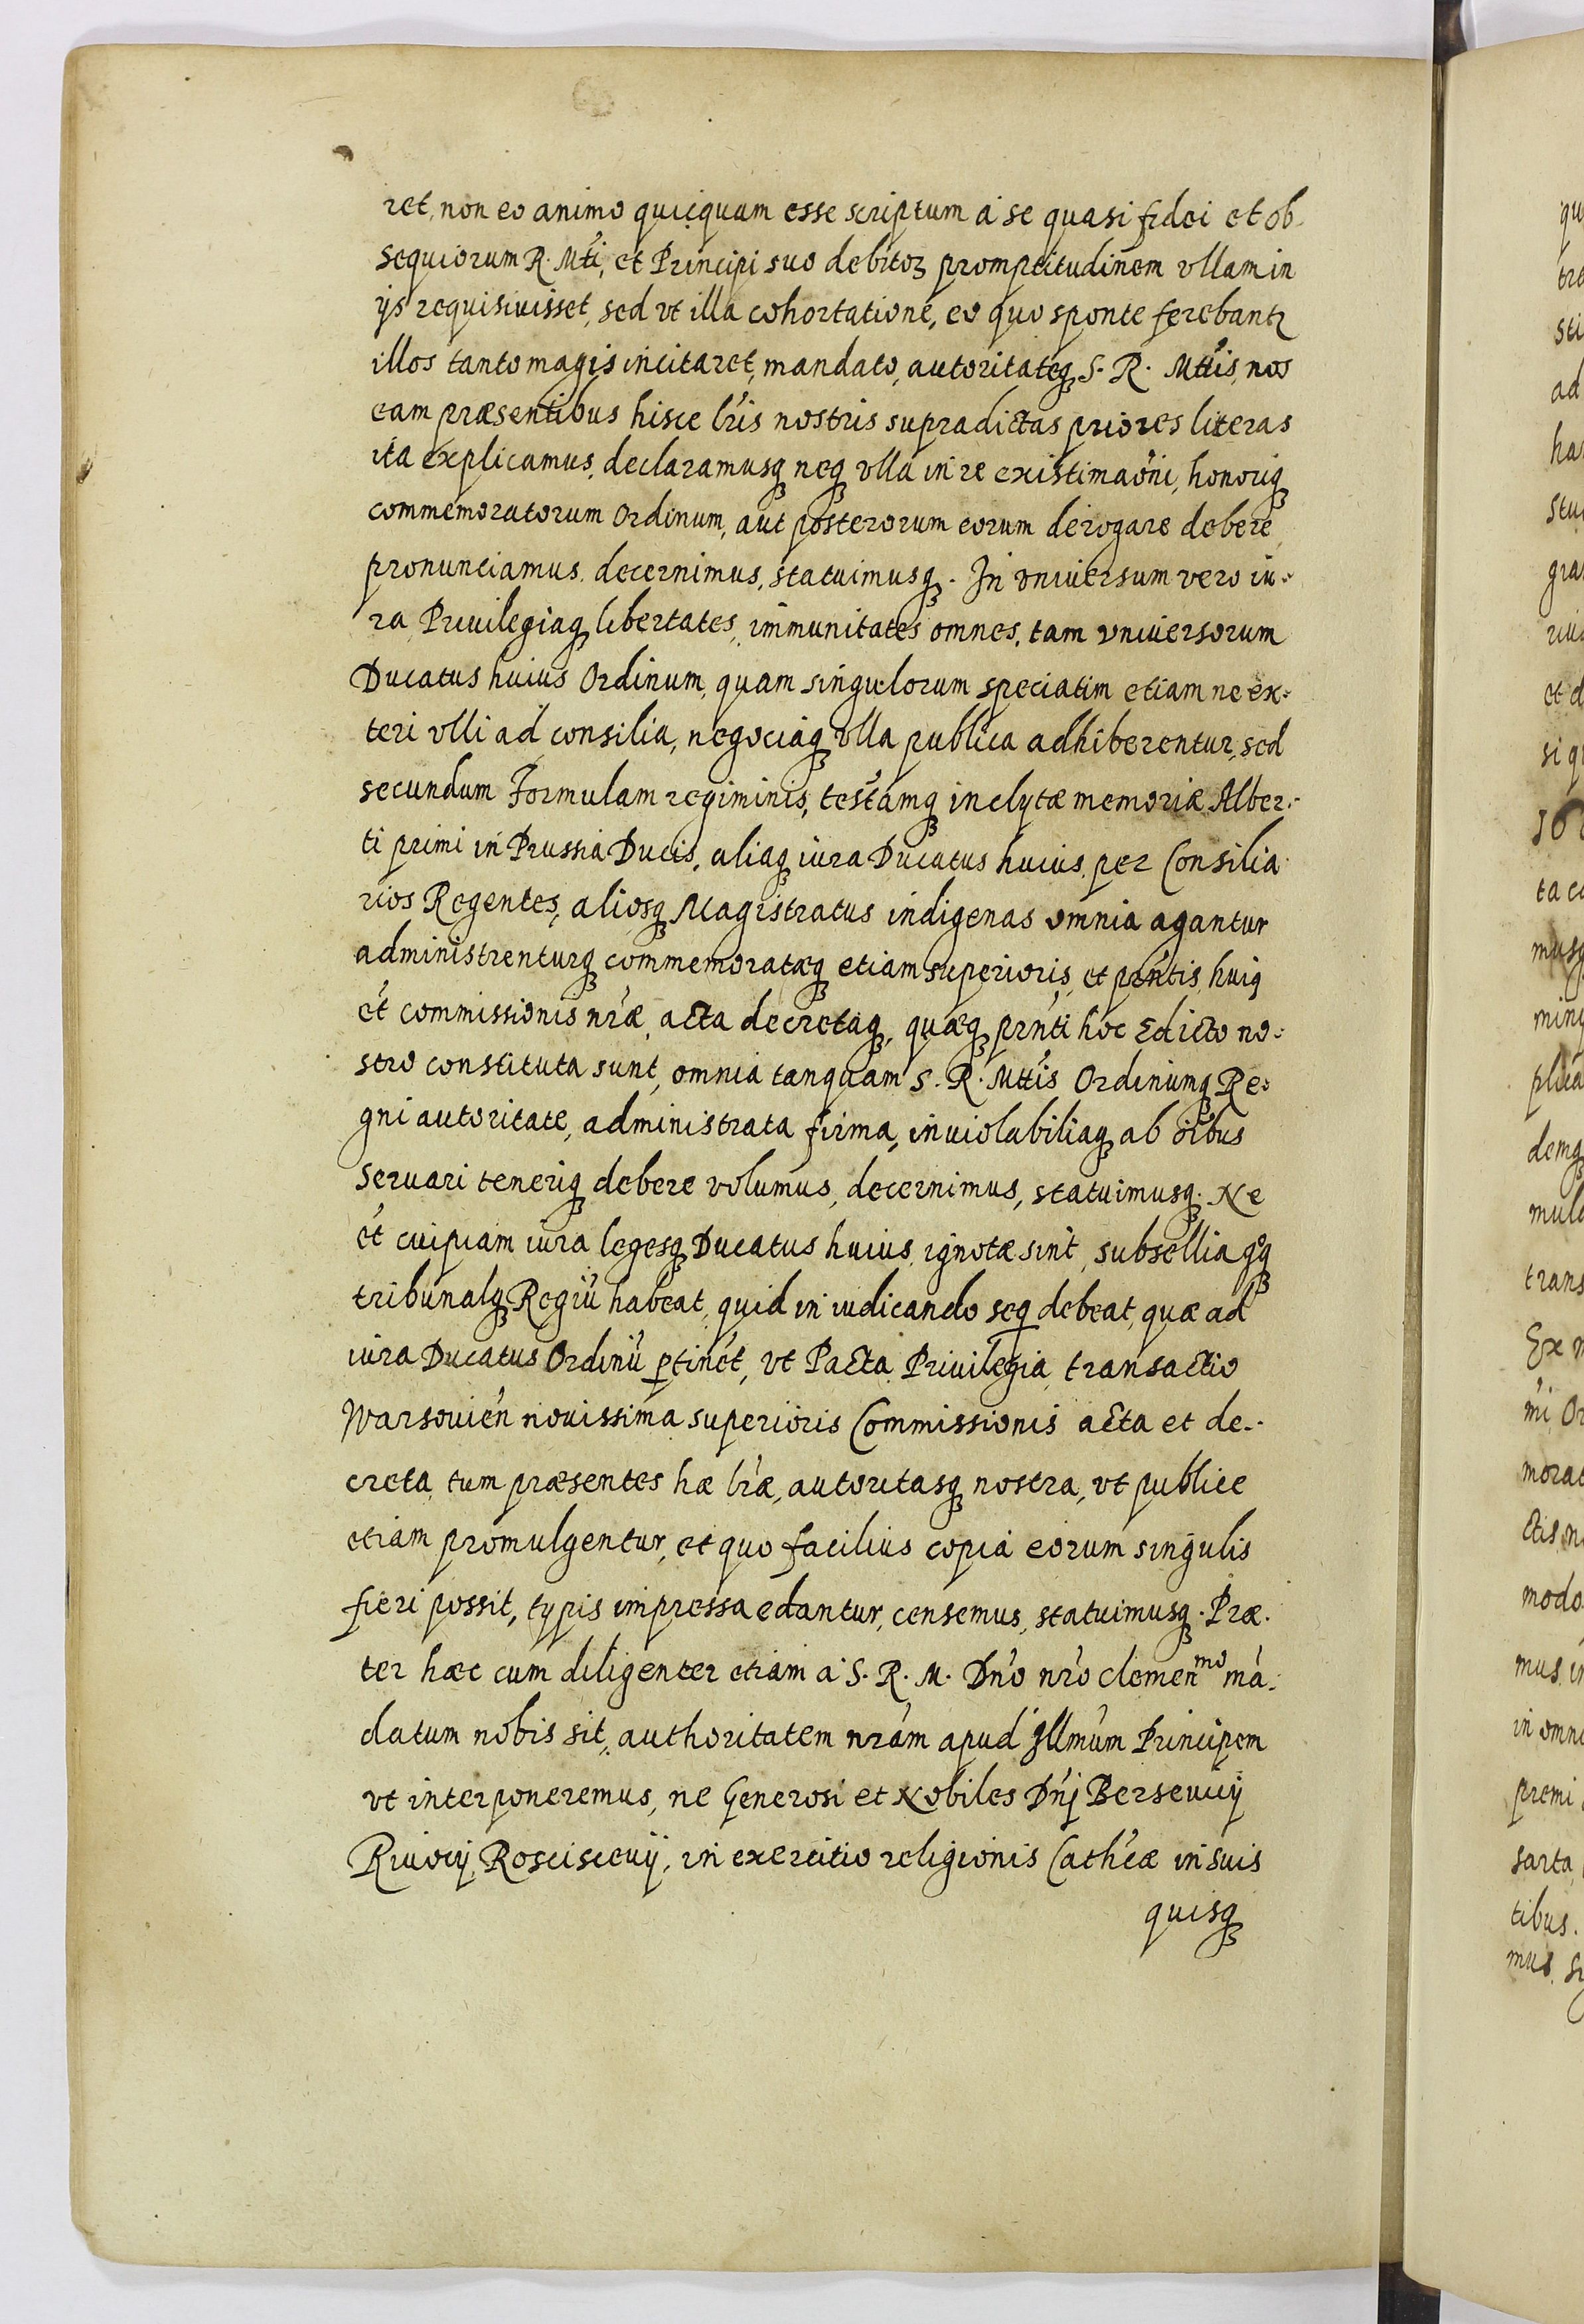 ret, non eo animo quicquam esse scriptum à se quasi fidei et ob-
sequiorum R. Mti, et Principi suo debitoꝝ promptitudinem vllam in
ijs requisiuisset, sed vt illa cohortatione, eo quo sponte ferebantr
illos tanto magis incitaret, mandato, autoritateq́ꝫ S. R. Mttis, nos
eam præsentibus hisce lr̃is nostris supradictas priores literas
ita explicamus, declaramusqꝫ neqꝫ vlla in re existimaõni, honoriqꝫ
commemoratorum Ordinum, aut posterorum eorum derogare debere,
pronunciamus, decernimus, statuimusqꝫ. In vniversum vero iu-
ra, Priuilegiaqꝫ libertates, immunitates omnes, tam vniversorum
Ducatus huius Ordinum, quam singulorum speciatim etiam ne ex-
teri vlli ad consilia, negociaqꝫ vlla publica adhiberentur, sed
secundum Formulam regiminis, testamqꝫ inclytæ memoriæ Alber-
ti primi in Prussia Ducis, aliaqꝫ iura Ducatus huius, per Consilia-
rios Regentes, aliosqꝫ Magistratus indigenas omnia agantur
administrenturqꝫ commemoratæqꝫ etiam superioris, et pñtis, huiq
et commissionis nr̃æ, acta decretaqꝫ, quæqꝫ prñti hoc Edicto no-
stro constituta sunt, omnia tanquam S. R. Mttis Ordinumqꝫ Re-
gni autoritate, administrata firma, inviolabiliaqꝫ ab oĩbus
seruari teneriqꝫ debere volumus, decernimus, statuimusqꝫ. Ne
et cuipiam iura legesqꝫ Ducatus huius, ignotæ sint, subsellia qͦqꝫ
tribunalqꝫ Regiũ habeat, quid in iudicando seq̃ debeat, quæ ad
iura Ducatus Ordinũ ꝑtinẽt, vt Pacta Priuilegia, transactio
Warsouieñ nouissima superioris Commissionis acta et de-
creta, tum præsentes hæ lr̃æ, autoritasqꝫ nostra, vt publice
etiam promulgentur, et quo facilius copia eorum singulis
fieri possit, typis impressa edantur, censemus, statuimusqꝫ. Præ-
ter hæc cum diligenter etiam à S. R. M. Dño nr̃o clemenᵐᵒ mã-
datum nobis sit, authoritatem nr̃am apud Illmũm Principem
vt interponeremus, ne Generosi et Nobiles Dñj Berseuicij
Riuocij, Roscisceuij, in exercitio religionis Cathcæ in suis
quisqꝫ